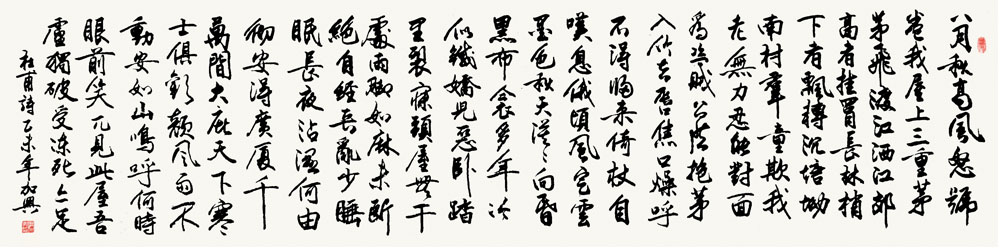 八月秋高風怒號
卷我屋上三重茅
茅飛渡江洒江郊
高者挂罥長林梢
下者飄轉沉塘坳
南村羣童欺我
老無力忍能對面
爲盜賊公然抱茅
入竹去唇焦口燥呼
不得歸來倚杖自
嘆息俄頃風定雲
墨色秋天漠〻向昏
黑布衾多年冷
似鐵嬌兒惡卧踏
里裂牀頭屋無干
處雨腳如麻未斷
絕自經喪亂少睡
眠長夜沾濕何由
徹安得廣厦千
萬間大庇天下寒
士俱歡顏風雨不
動安如山嗚呼何時
眼前突兀見此屋吾
廬獨破受凍死亦足
杜甫詩乙未年加興